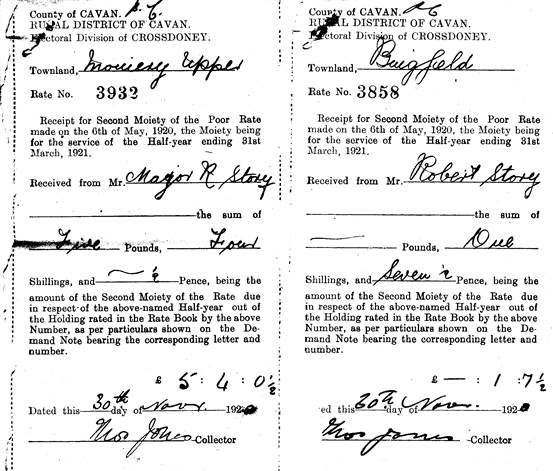 County of CAVAN.
RURAL DISTRICT OF CAVAN.
Electoral Division of CROSSDONEY.
Townland, Upper
Rate No. 3932
Receipt for Second Moiety of the Poor Rate
made on the 6th of May, 1920, the Moiety being
for the service of the Half-year ending 31st
March, 1921.
Received from Mr. Major R Story
the sum of
Five Pounds, Four
Shillings, and — ½ Pence, being the
amount of the Second Moiety of the Rate due
in respect of the above-named Half-year out of
the Holding rated in the Rate Book by the above
Number, as per particulars shown on the De-
mand Note bearing the corresponding letter and
number.
£ 5 : 4 : 0½
Dated this 30th day of Novr. 1920
Thos Jones Collector
County of CAVAN.
RURAL DISTRICT OF CAVAN.
Electoral Division of CROSSDONEY.
Townland,
Rate No. 3858
Receipt for Second Moiety of the Poor Rate
made on the 6th of May, 1920, the Moiety being
for the service of the Half-year ending 31st
March, 1921.
Received from Mr. Robert Story
the sum of
— Pounds, One
Shillings, and Seven ½ Pence, being the
amount of the Second Moiety of the Rate due
in respect of the above-named Half-year out of
the Holding rated in the Rate Book by the above
Number, as per particulars shown on the De-
mand Note bearing the corresponding letter and
number.
£ — : 1 : 7½
ed this 30th day of Novr. 1920
Thos Jones -Collector